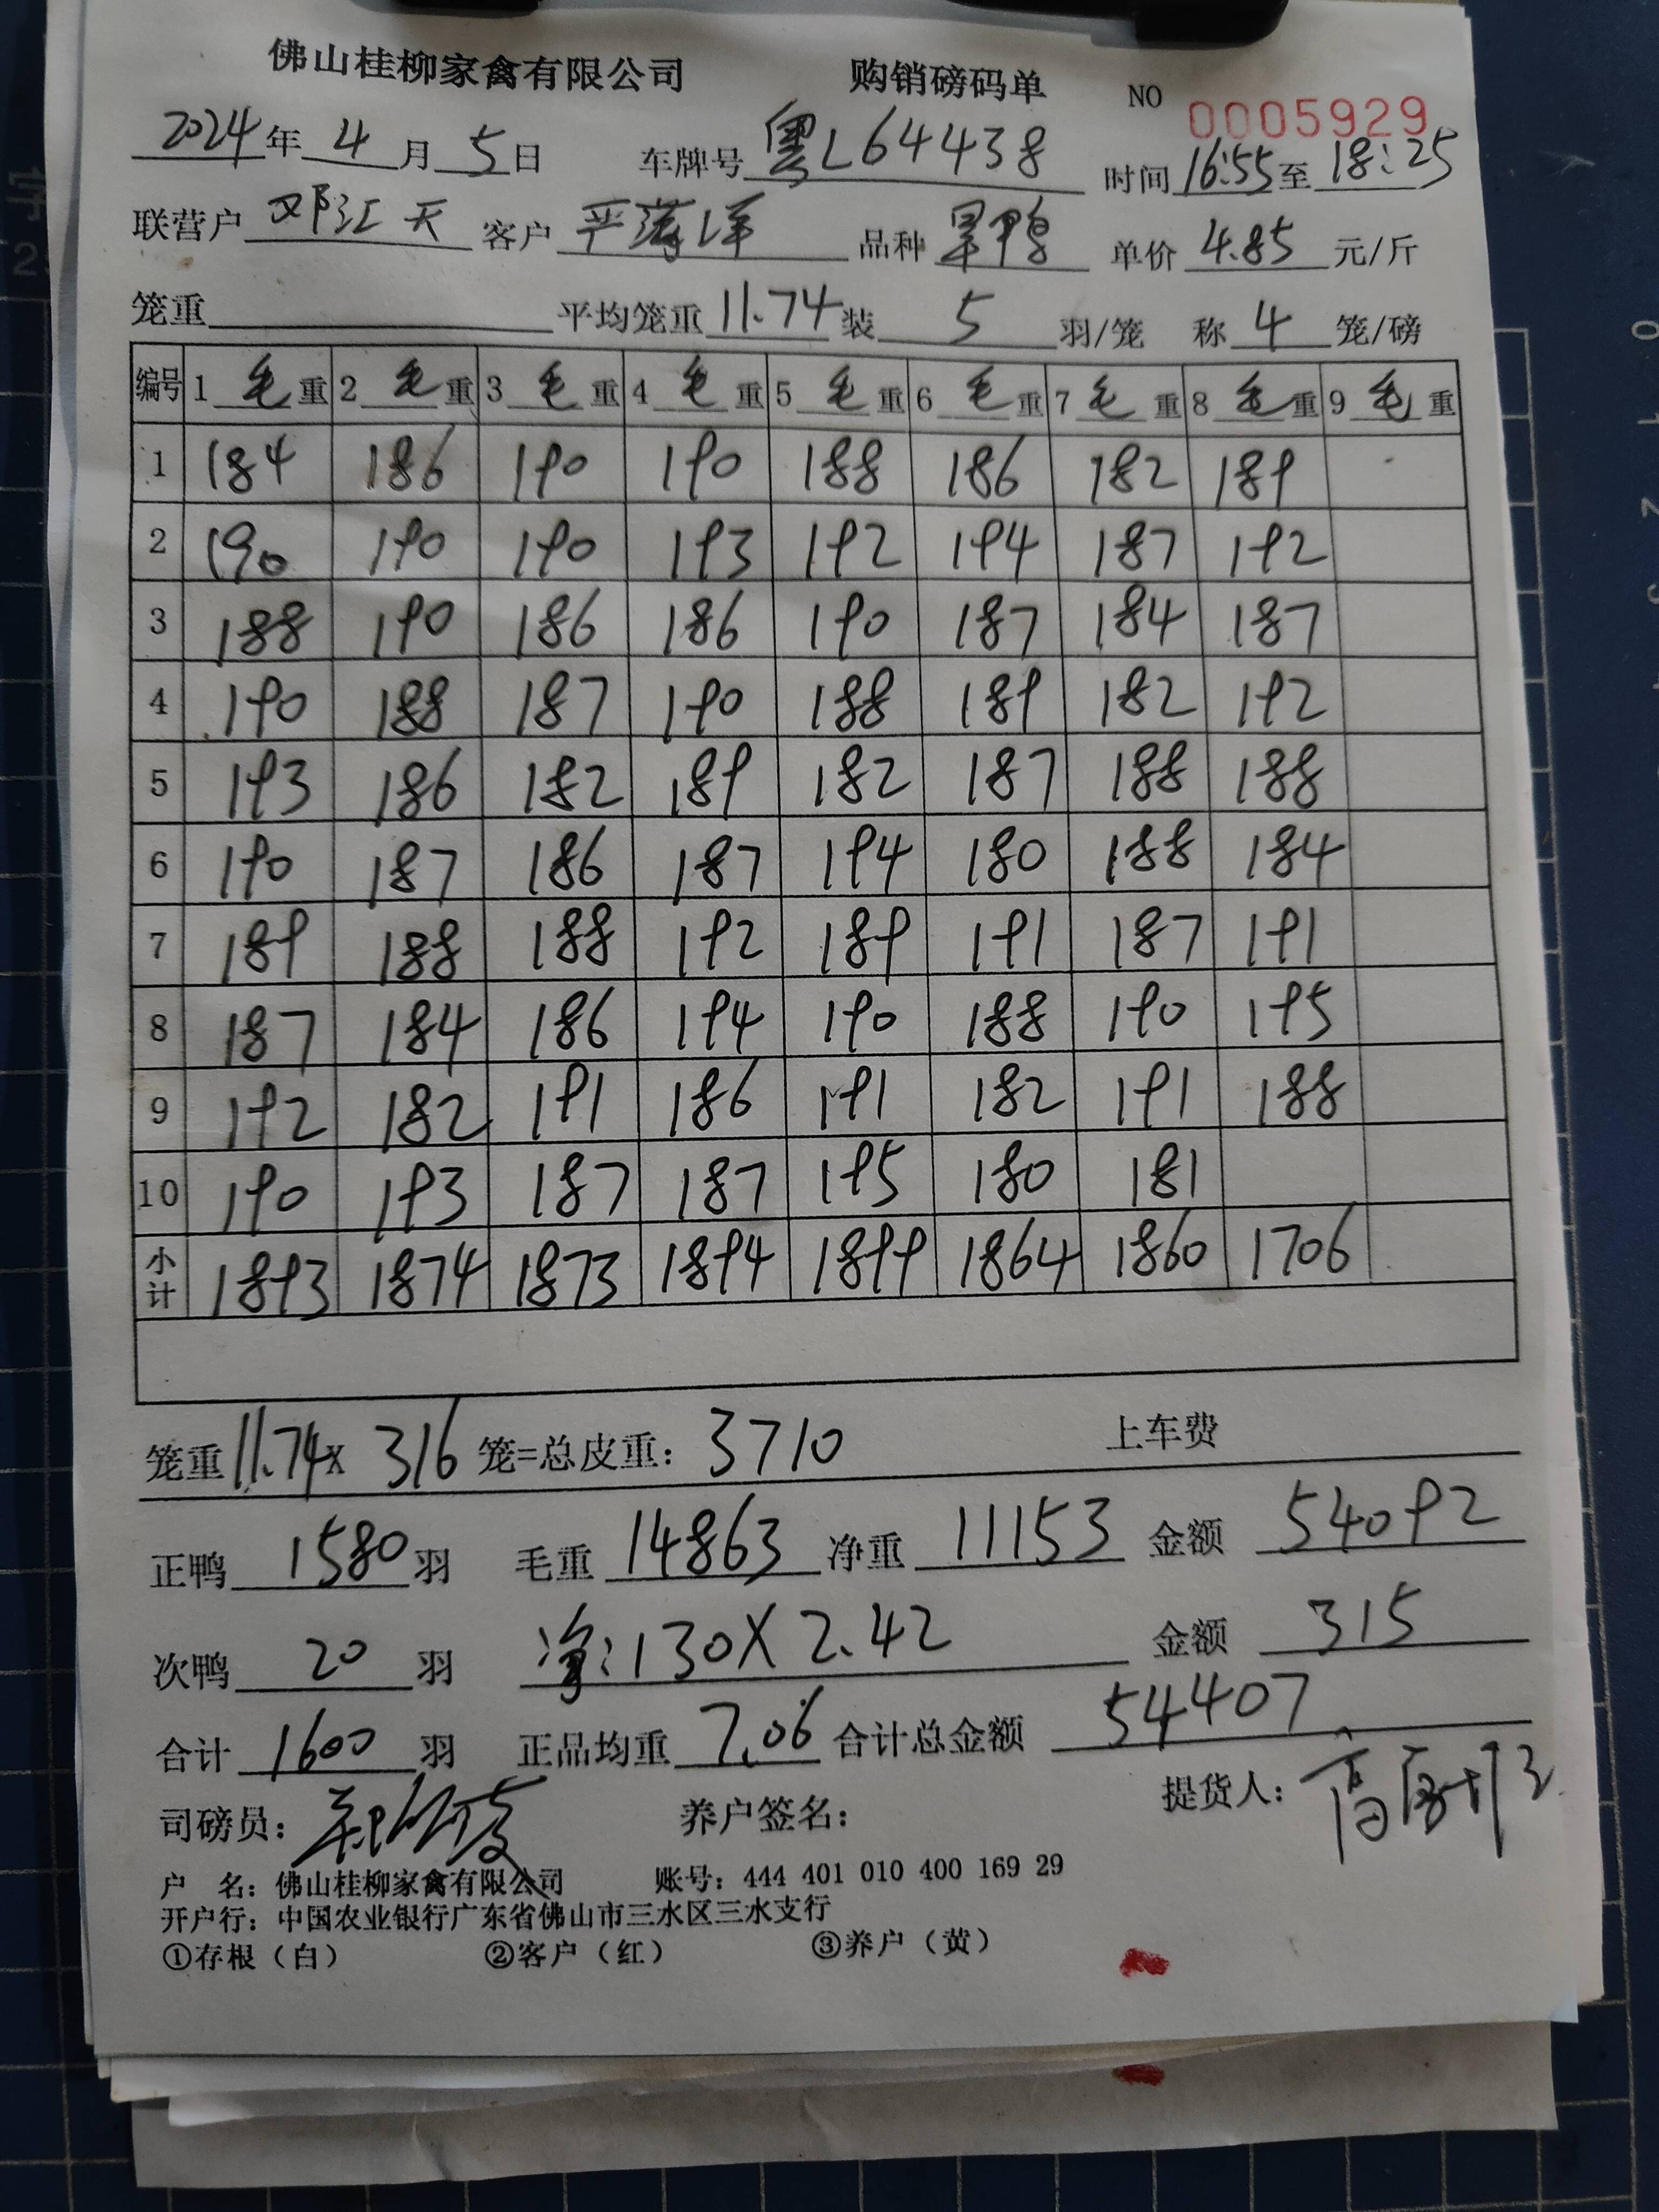 佛山桂柳家禽有限公司 购销磅码单 NO 0005929
2024年4月5日 车牌号 粤L64438 时间 16:55至18:25
联营户 邓江天 客户 严满洋 品种 旱鸭 单价 4.85 元/斤
笼重 平均笼重 11.74 装 5 羽/笼 称 4 笼/磅
编号 1 毛 重 2 毛 重 3 毛 重 4 毛 重 5 毛 重 6 毛 重 7 毛 重 8 毛 重 9 毛 重
1 184 186 190 190 188 186 182 189
2 190 190 190 193 192 194 187 192
3 188 190 186 186 190 187 184 187
4 190 188 187 190 188 189 182 192
5 193 186 182 189 182 187 188 188
6 190 187 186 187 194 180 188 184
7 189 188 188 192 189 191 187 191
8 187 184 186 194 190 188 190 195
9 192 182 191 186 191 182 191 188
10 190 193 187 187 195 180 181
小计 1893 1874 1873 1894 1899 1864 1860 1706
笼重 11.74 x 316 笼=总皮重: 3710 上车费
正鸭 1580 羽 毛重 14863 净重 11153 金额 54092
次鸭 20 羽 净:130X2.42 金额 315
合计 1600 羽 正品均重 7.06 合计总金额 54407
司磅员: 养户签名: 提货人:
户 名: 佛山桂柳家禽有限公司 账号: 444 401 010 400 169 29
开户行: 中国农业银行广东省佛山市三水区三水支行
①存根（白） ②客户（红） ③养户（黄）